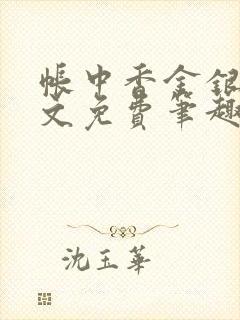 帐中香金银
文免费笔趣
沈玉华